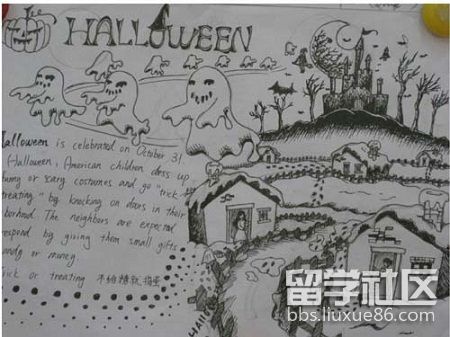 HALLOWEEN
Halloween is celebrated on October 31,
Halloween, American children dress up
funny or scary costumes and go "trick
treating" by knocking on doors in their
borhood. The neighbors are expected
respond by giving them small gifts
candy or money
Trick or treating 不给糖就捣蛋
留学社区
bbs.liuxue86.com